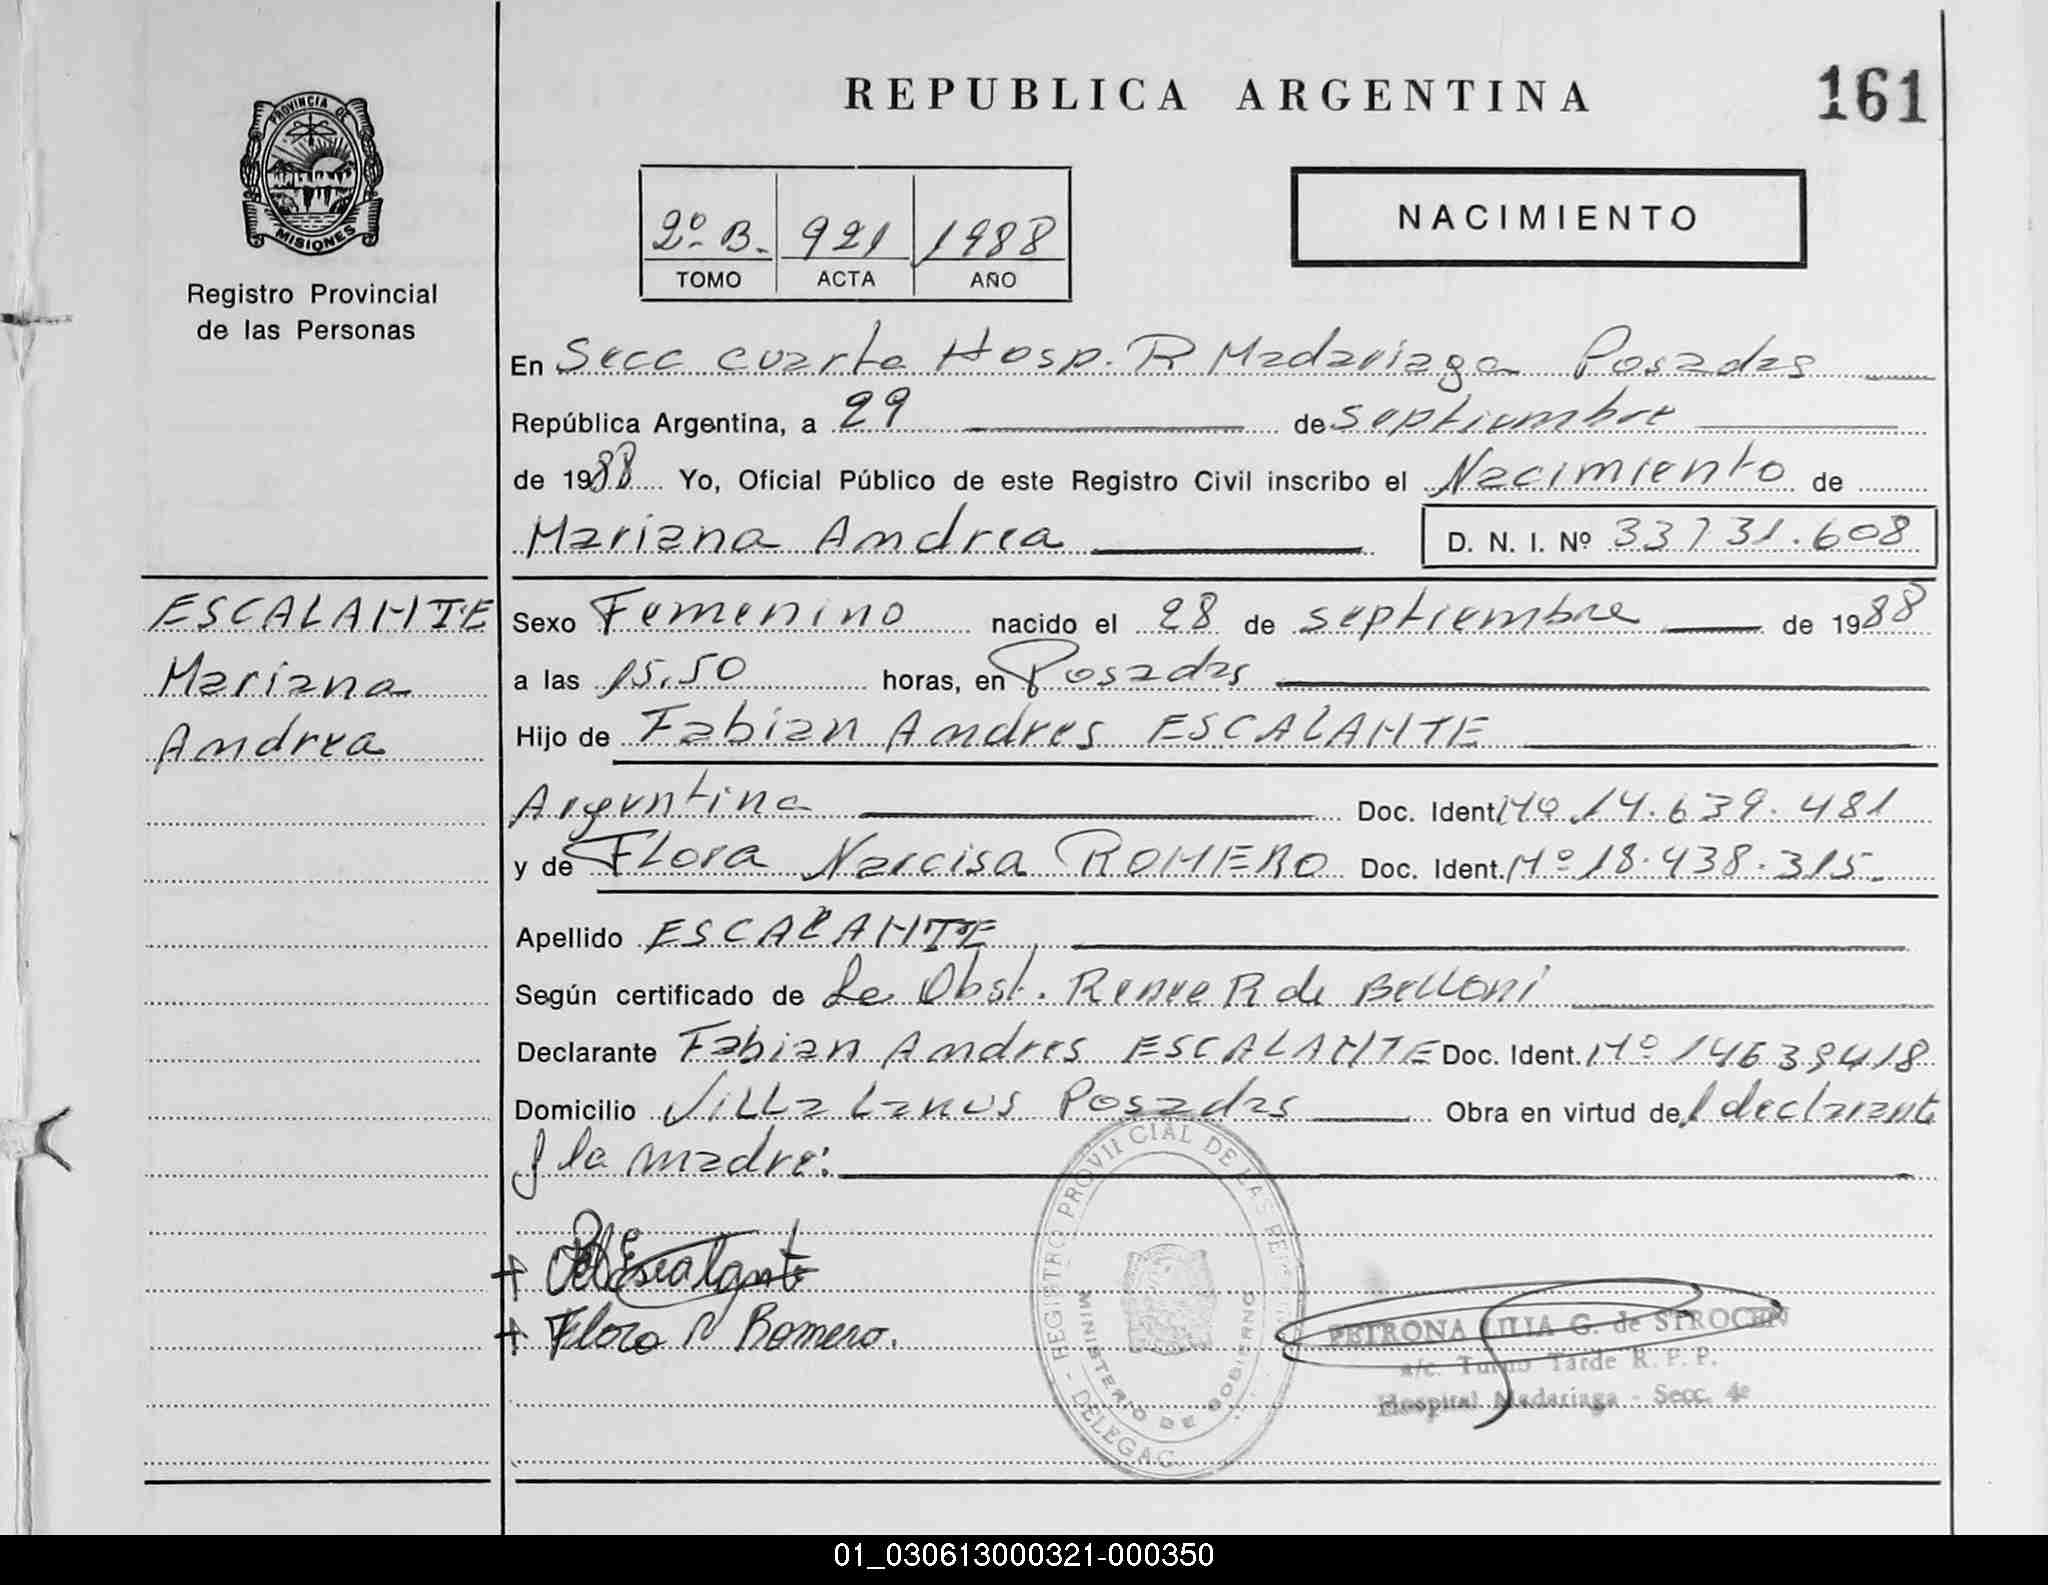 REPUBLICA ARGENTINA
161
PROVINCIA DE
MISIONES
Registro Provincial
de las Personas
2º B. 921 1988
TOMO ACTA AÑO
NACIMIENTO
En Secc cuarta Hosp. R Madariaga Posadas
República Argentina, a 29 de septiembre
de 1988 Yo, Oficial Público de este Registro Civil inscribo el Nacimiento de
Mariana Andrea D. N. I. Nº 33731.608
ESCALANTE
Mariana
Andrea
Sexo Femenino nacido el 28 de septiembre de 1988
a las 15.50 horas, en Posadas
Hijo de Fabian Andres ESCALANTE
Argentina Doc. Ident. Nº 14.639.481
y de Flora Narcisa ROMERO Doc. Ident. Nº 18.438.315.
Apellido ESCALANTE
Según certificado de La Obst. Renee R de Belloni
Declarante Fabian Andres ESCALANTE Doc. Ident. Nº 14639418
Domicilio Villa Lanus Posadas Obra en virtud del declarante
y la madre:
Escalante
Flora N Romero.
REGISTRO PROVINCIAL DE LAS PE
DELEGAC
MINISTERIO DE GOBIERNO
PETRONA LILIA G. de STROCEN
a/c. Turno Tarde R. P. P.
Hospital Madariaga - Secc. 4º
01_030613000321-000350